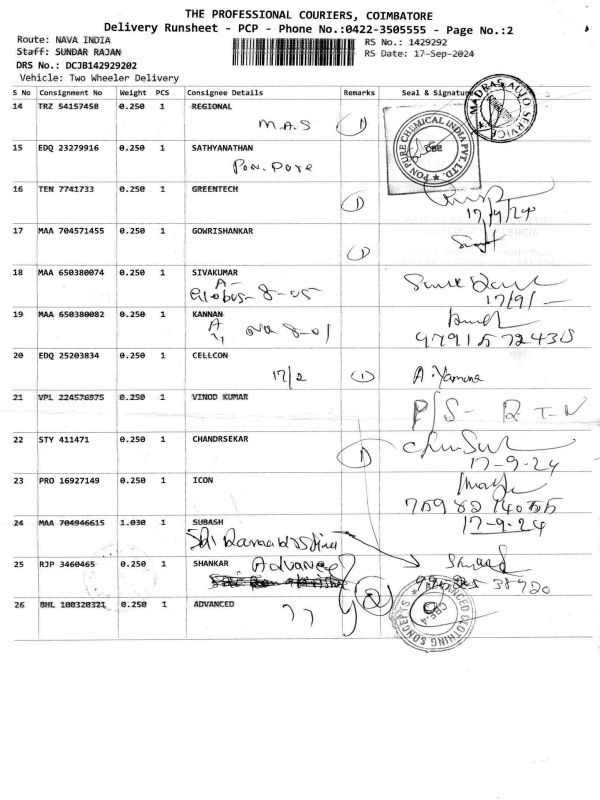 THE PROFESSIONAL COURIERS, COIMBATORE
Delivery Runsheet - PCP - Phone No.:0422-3505555 - Page No.:2
Route: NAVA INDIA
RS No.: 1429292
Staff: SUNDAR RAJAN
RS Date: 17-Sep-2024
DRS No.: DCJB142929202
Vehicle: Two Wheeler Delivery
S No Consignment No Weight PCS Consignee Details Remarks Seal & Signature
14 TRZ 54157458 0.250 1 REGIONAL
M.A.S 1
MADRAS AUTO SERVICE
15 EDQ 23279916 0.250 1 SATHYANATHAN
Pon. Pure
PON PURE CHEMICAL INDIA PVT. LTD. CBE
16 TEN 7741733 0.250 1 GREENTECH
1
17/9/24
17 MAA 704571455 0.250 1 GOWRISHANKAR
1
18 MAA 650380074 0.250 1 SIVAKUMAR
A-
Globus-8-05
17/9/-
19 MAA 650380082 0.250 1 KANNAN
A
8-01
20 EDQ 25203834 0.250 1 CELLCON
17/2 1 A. Yamuna
21 VPL 224576975 0.250 1 VINOD KUMAR
P/S- RTN
22 STY 411471 0.250 1 CHANDRSEKAR
1
17-9-24
23 PRO 16927149 0.250 1 ICON
17-9-24
24 MAA 704946615 1.030 1 SUBASH
25 RJP 3460465 0.250 1 SHANKAR Advanced
26 BHL 100320321 0.250 1 ADVANCED
2
ADVANCED CLOTHING CONCEPTS